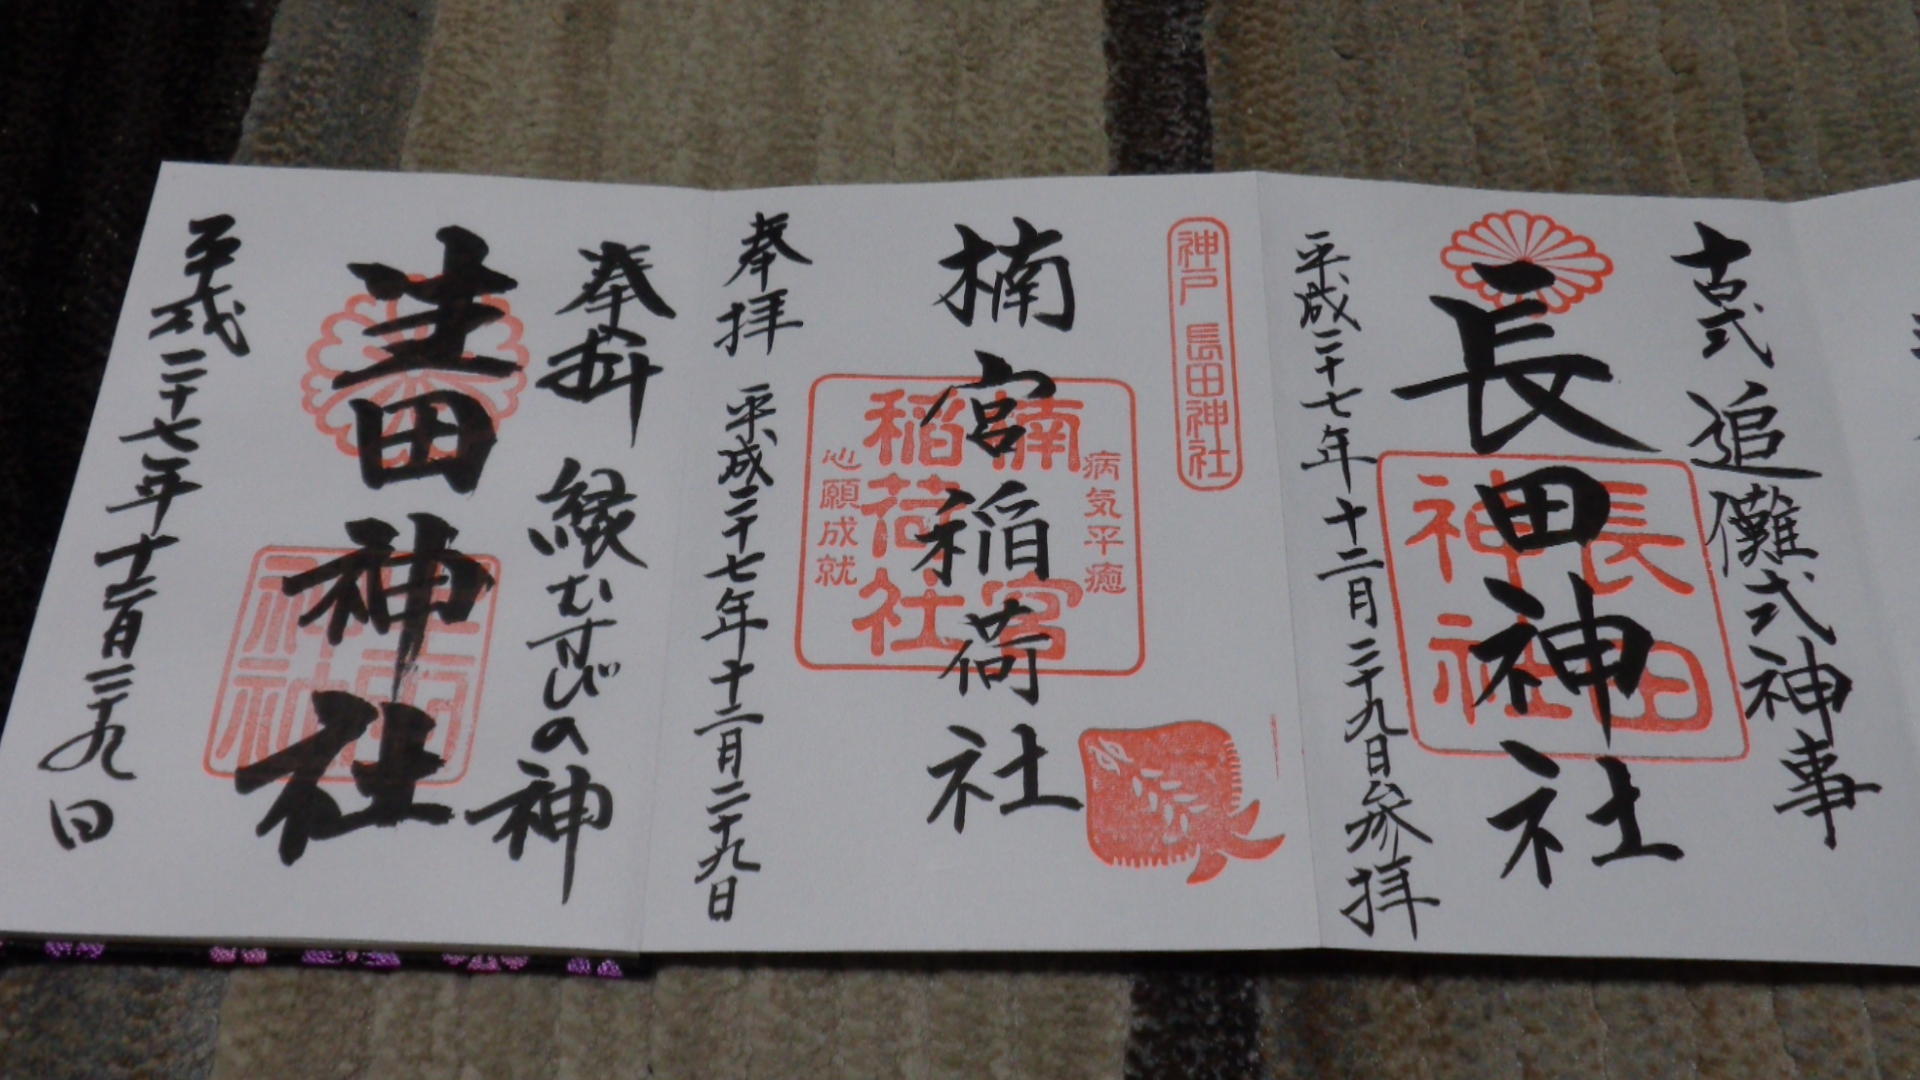 古式追儺式神事
長田神社
長田
神社
平成二十七年十二月二十九日参拝
神戸 長田神社
楠宮稲荷社
病気平癒
楠宮
稲荷社
心願成就
奉拝 平成二十七年十二月二十九日
奉拝 縁むすびの神
生田神社
生田
神社
平成二十七年十二月二十九日